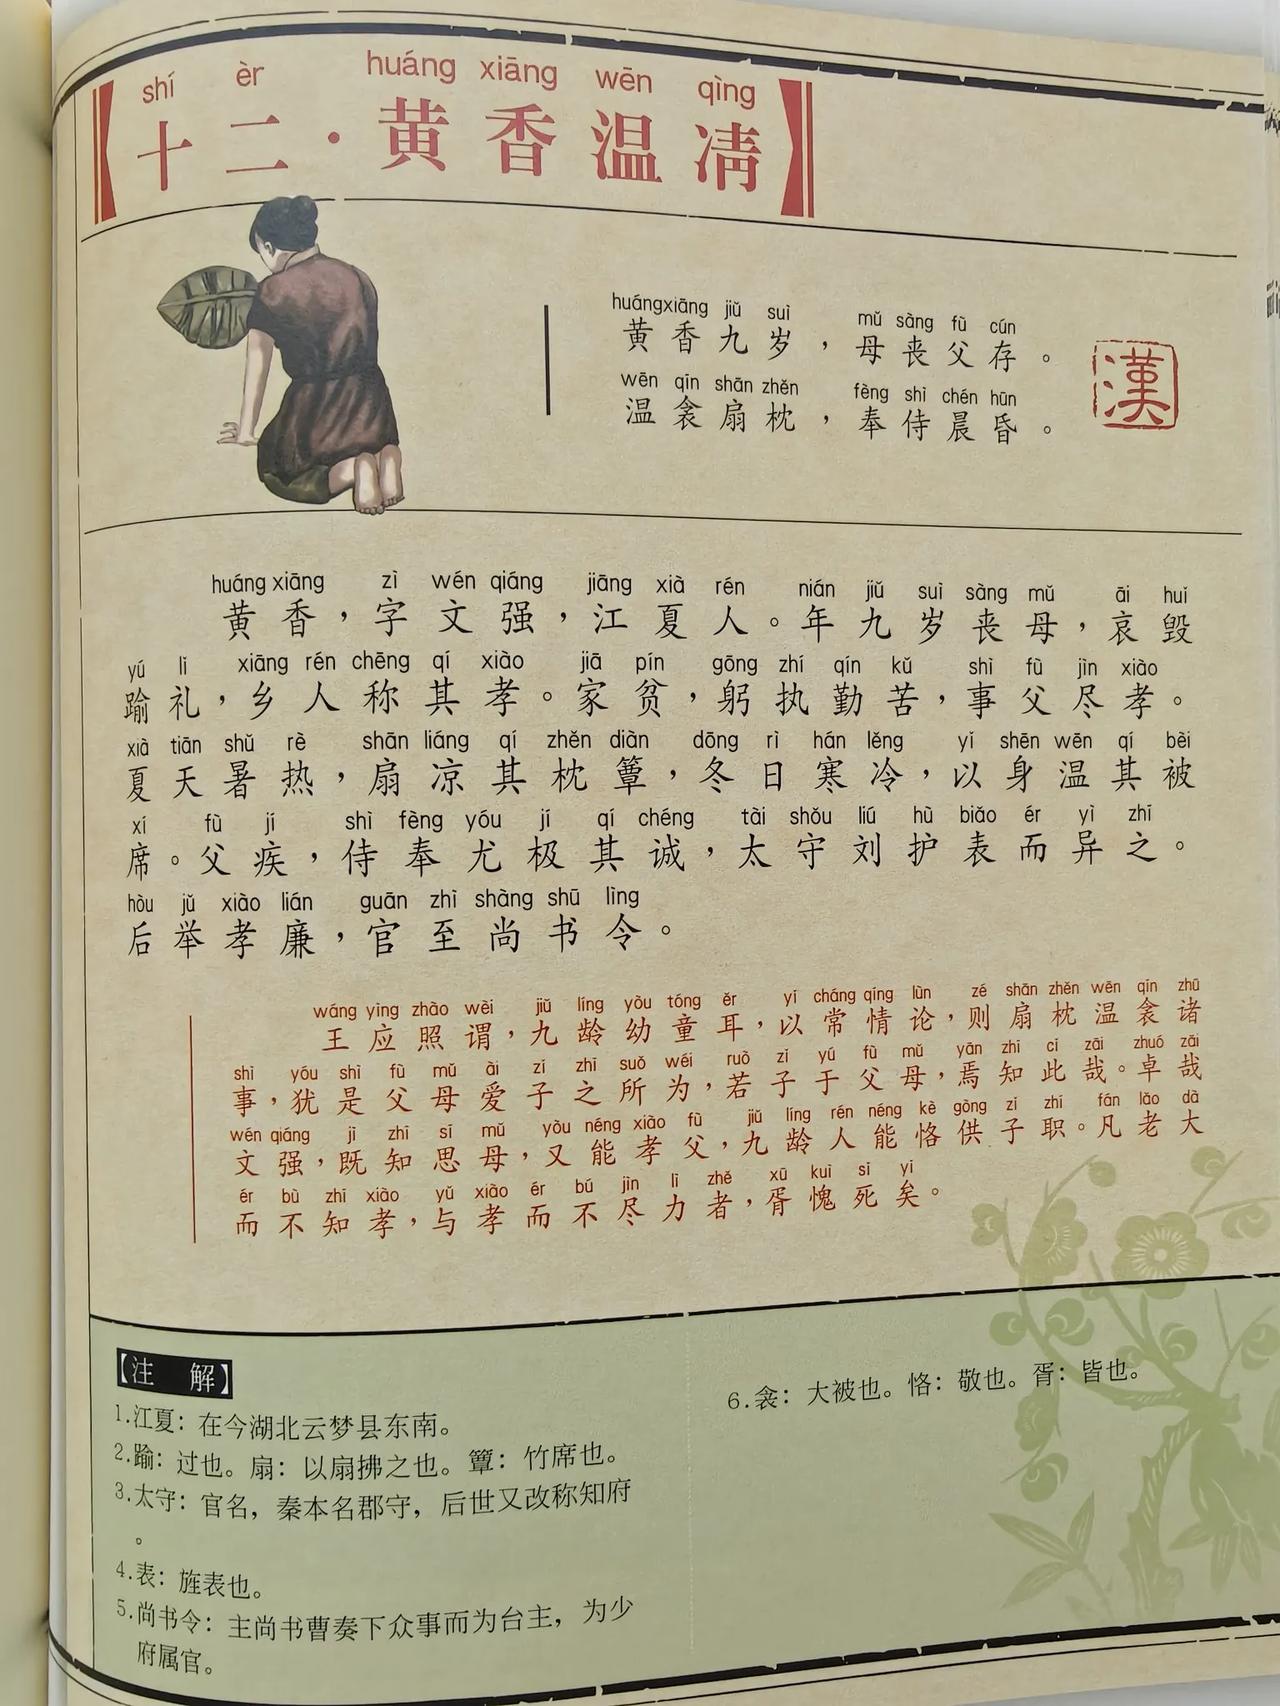 shí èr huáng xiāng wēn qìng
【十二·黄香温凊】
huángxiāng jiǔ suì mǔ sàng fù cún
黄香九岁，母丧父存。
wēn qīn shān zhěn fèng shì chén hūn
温衾扇枕，奉侍晨昏。
漢
huáng xiāng zì wén qiáng jiāng xià rén nián jiǔ suì sàng mǔ āi huǐ
黄香，字文强，江夏人。年九岁丧母，哀毁
yú lǐ xiāng rén chēng qí xiào jiā pín gōng zhí qín kǔ shì fù jìn xiào
踰礼，乡人称其孝。家贫，躬执勤苦，事父尽孝。
xià tiān shǔ rè shān liáng qí zhěn diàn dōng rì hán lěng yǐ shēn wēn qí bèi
夏天暑热，扇凉其枕簟，冬日寒冷，以身温其被
xí fù jí shì fèng yóu jí qí chéng tài shǒu liú hù biǎo ér yì zhī
席。父疾，侍奉尤极其诚，太守刘护表而异之。
hòu jǔ xiào lián guān zhì shàng shū lìng
后举孝廉，官至尚书令。
wáng yìng zhào wèi jiǔ líng yòu tóng ěr yǐ cháng qíng lùn zé shān zhěn wēn qīn zhū
王应照谓，九龄幼童耳，以常情论，则扇枕温衾诸
shì yóu shì fù mǔ ài zǐ zhī suǒ wéi ruò zǐ yú fù mǔ yān zhī cǐ zāi zhuó zāi
事，犹是父母爱子之所为，若子于父母，焉知此哉。卓哉
wén qiáng jì zhī sī mǔ yòu néng xiào fù jiǔ líng rén néng kè gòng zǐ zhí fán lǎo dà
文强，既知思母，又能孝父，九龄人能恪供子职。凡老大
ér bù zhī xiào yǔ xiào ér bú jìn lì zhě xū kuì sǐ yǐ
而不知孝，与孝而不尽力者，胥愧死矣。
【注 解】
1.江夏：在今湖北云梦县东南。
2.踰：过也。扇：以扇拂之也。簟：竹席也。
3.太守：官名，秦本名郡守，后世又改称知府
。
4.表：旌表也。
5.尚书令：主尚书曹奏下众事而为台主，为少
府属官。
6.衾：大被也。恪：敬也。胥：皆也。